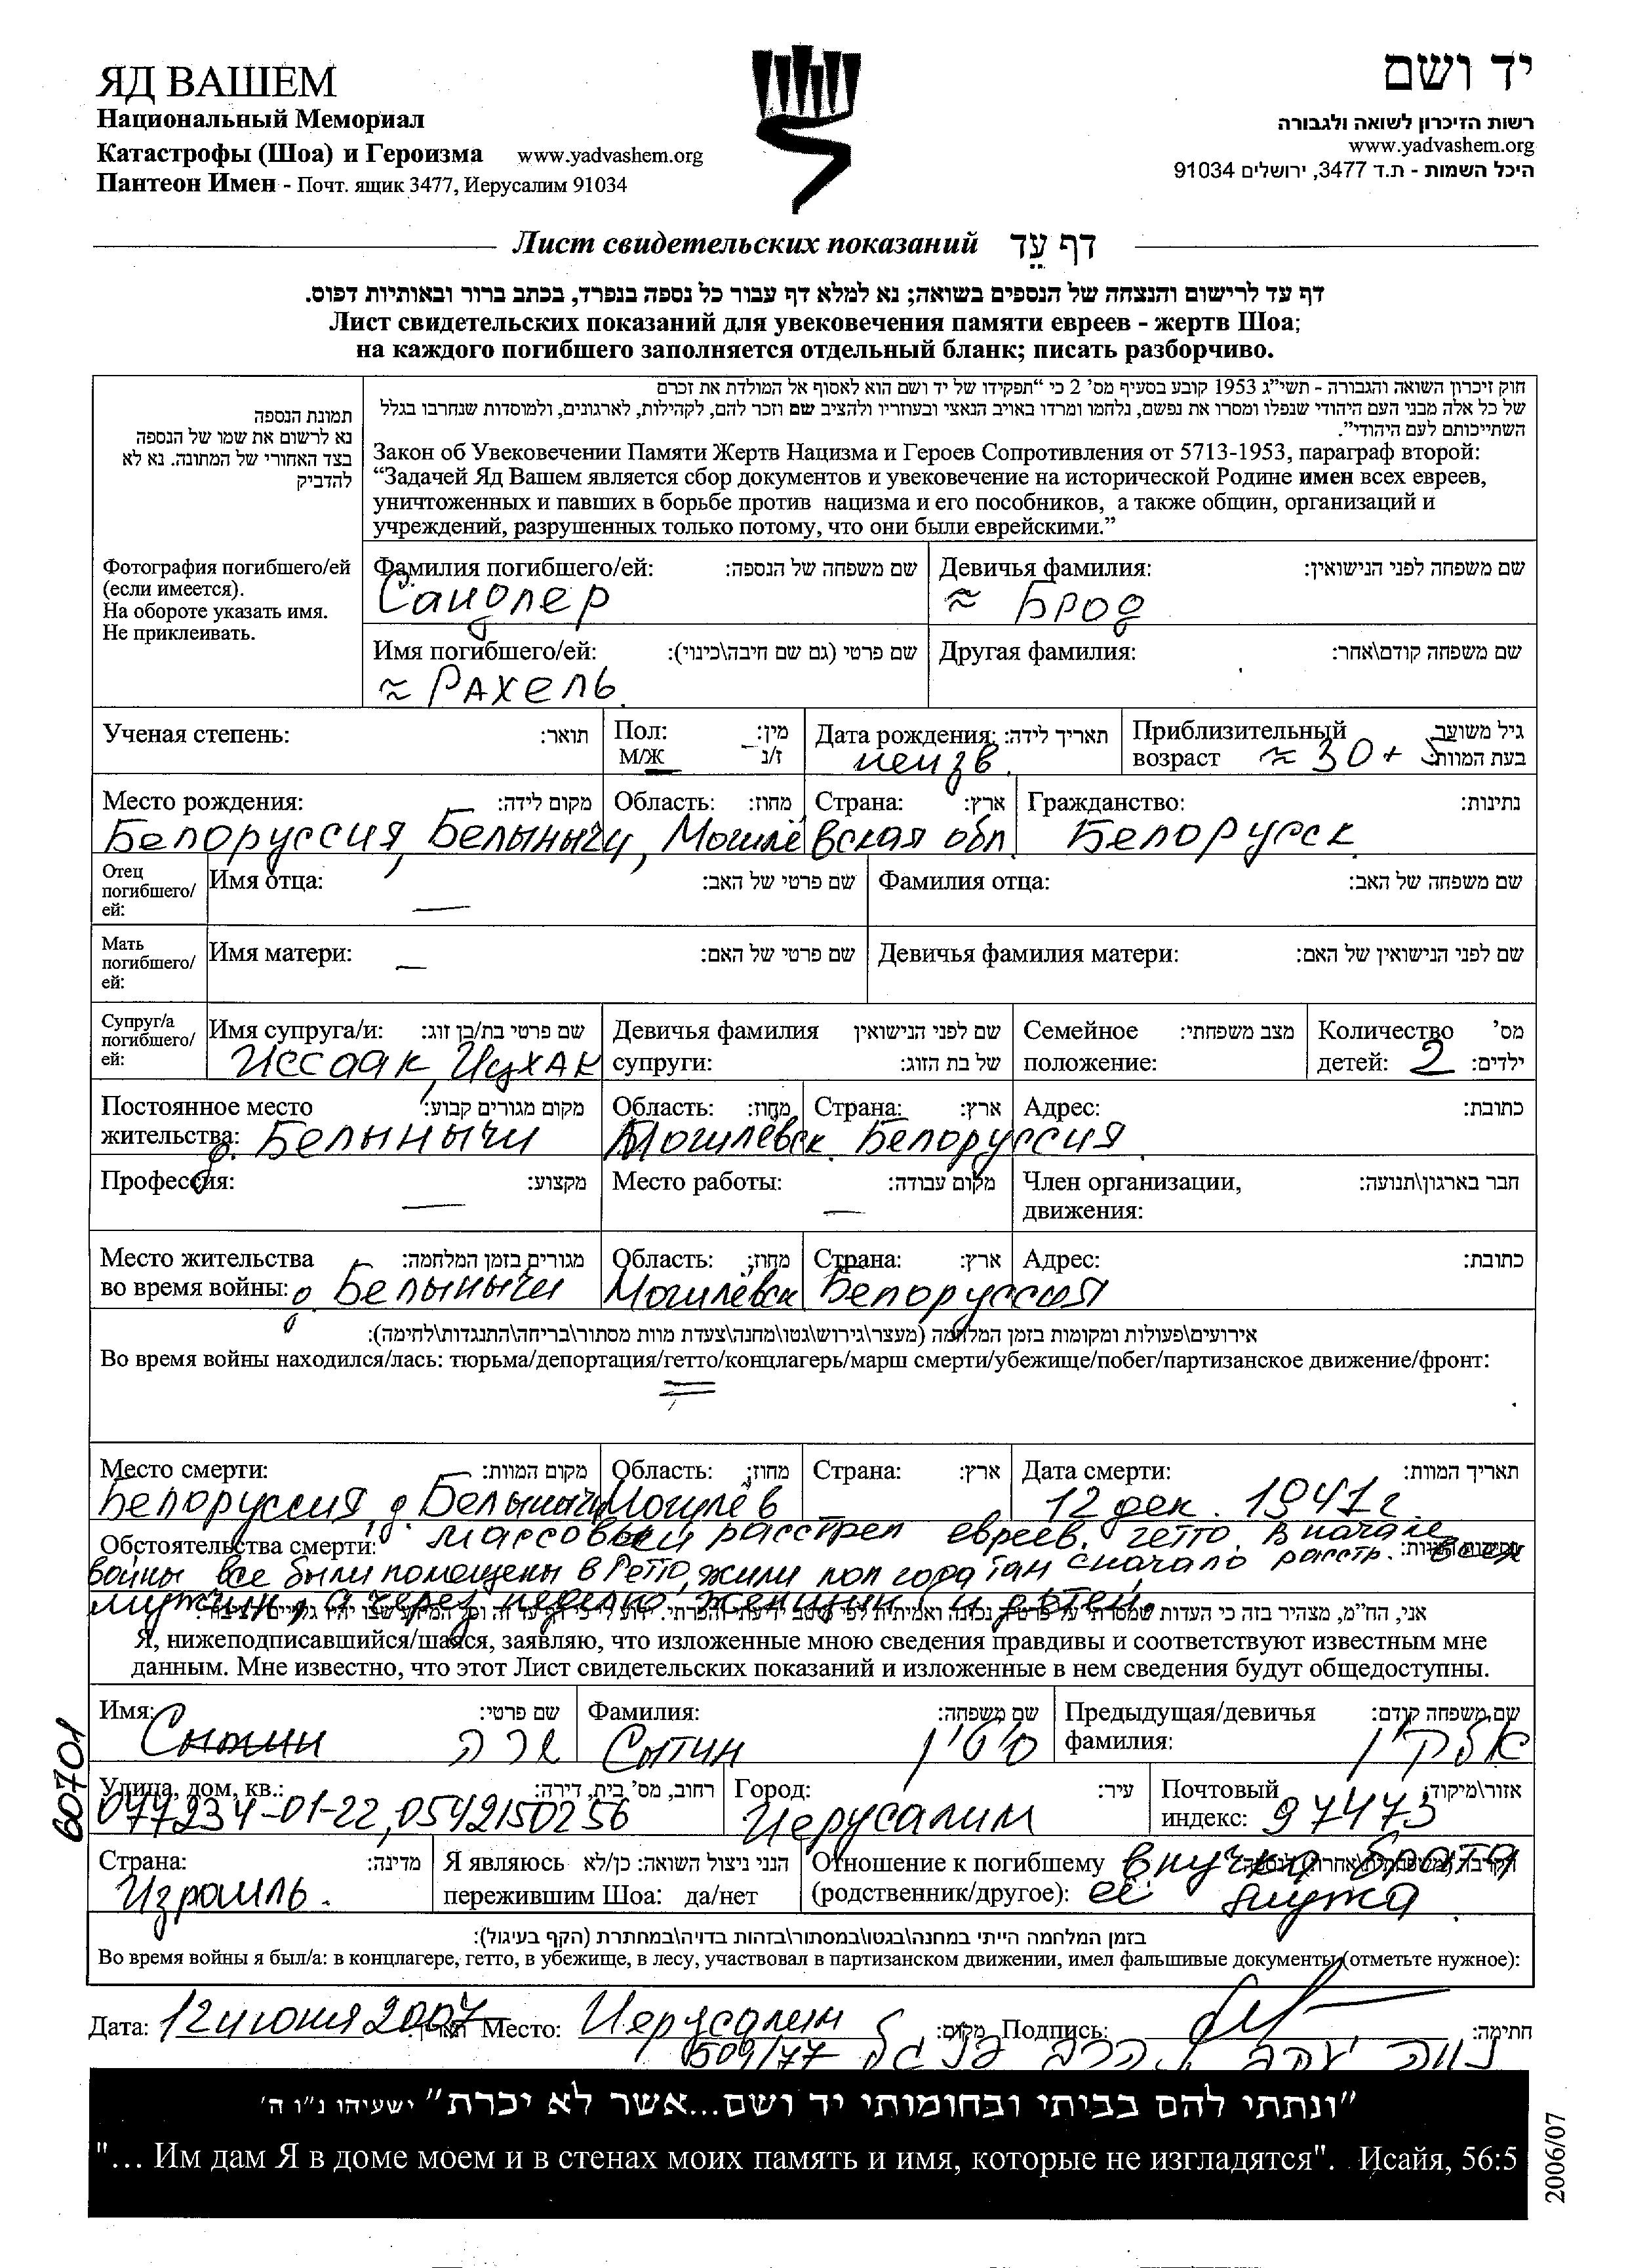 ЯД ВАШЕМ
Национальный Мемориал
Катастрофы (Шоа) и Героизма www.yadvashem.org
Пантеон Имен - Почт. ящик 3477, Иерусалим 91034
יד ושם
רשות הזיכרון לשואה ולגבורה
www.yadvashem.org
היכל השמות - ת.ד 3477, ירושלים 91034
Лист свидетельских показаний דף עֵד
דף עד לרישום והנצחה של הנספים בשואה; נא למלא דף עבור כל נספה בנפרד, בכתב ברור ובאותיות דפוס.
Лист свидетельских показаний для увековечения памяти евреев - жертв Шоа;
на каждого погибшего заполняется отдельный бланк; писать разборчиво.
תמונת הנספה
נא לרשום את שמו של הנספה
בצד האחורי של התמונה. נא לא
להדביק
Фотография погибшего/ей
(если имеется).
На обороте указать имя.
Не приклеивать.
חוק זיכרון השואה והגבורה - תשי"ג 1953 קובע בסעיף מס' 2 כי "תפקידו של יד ושם הוא לאסוף אל המולדת את זכרם
של כל אלה מבני העם היהודי שנפלו ומסרו את נפשם, נלחמו ומרדו באויב הנאצי ובעוזריו ולהציב שם וזכר להם, לקהילות, לארגונים, ולמוסדות שנחרבו בגלל
השתייכותם לעם היהודי".
Закон об Увековечении Памяти Жертв Нацизма и Героев Сопротивления от 5713-1953, параграф второй:
"Задачей Яд Вашем является сбор документов и увековечение на исторической Родине имен всех евреев,
уничтоженных и павших в борьбе против нацизма и его пособников, а также общин, организаций и
учреждений, разрушенных только потому, что они были еврейскими."
Фамилия погибшего/ей: שם משפחה של הנספה: Девичья фамилия: שם משפחה לפני הנישואין:
Сандлер ≈ Брод
Имя погибшего/ей: שם פרטי (גם שם חיבה\כינוי): Другая фамилия: שם משפחה קודם\אחר:
≈ Рахель
Ученая степень: תואר: Пол: מין: Дата рождения: תאריך לידה: Приблизительный גיל משוער
М/Ж ז/נ неизв. возраст ≈ 30 + בעת המוות:
Место рождения: מקום לידה: Область: מחוז: Страна: ארץ: Гражданство: נתינות:
Белоруссия, Белыничи, Могилёвская обл. Белорусск.
Отец
погибшего/
ей:
Имя отца: שם פרטי של האב: Фамилия отца: שם משפחה של האב:
—
Мать
погибшего/
ей:
Имя матери: — שם פרטי של האם: Девичья фамилия матери: שם לפני הנישואין של האם:
Супруг/а
погибшего/
ей:
Имя супруга/и: שם פרטי בת/בן זוג: Девичья фамилия שם לפני הנישואין Семейное מצב משפחתי: Количество מס'
Иссаак, Ицхак супруги: של בת הזוג: положение: детей: 2 ילדים:
Постоянное место מקום מגורים קבוע: Область: מחוז: Страна: ארץ: Адрес: כתובת:
жительства: д. Белыничи Могилёвск. Белоруссия
Профессия: מקצוע: Место работы: מקום עבודה: Член организации, חבר בארגון\תנועה:
— — движения:
Место жительства מגורים בזמן המלחמה: Область: מחוז: Страна: ארץ: Адрес: כתובת:
во время войны: д Белыничи Могилёвск Белоруссия
אירועים\פעולות ומקומות בזמן המלחמה (מעצר\גירוש\גטו\מחנה\צעדת מוות מסתור\בריחה\התנגדות\לחימה):
Во время войны находился/лась: тюрьма/депортация/гетто/концлагерь/марш смерти/убежище/побег/партизанское движение/фронт:
Место смерти: מקום המוות: Область: מחוז: Страна: ארץ: Дата смерти: תאריך המוות:
Белоруссия, д. Белыничи Могилёв 12 дек. 1941 г.
Обстоятельства смерти: массовый расстрел евреев. гетто. В начале
войны все были помещены в Гетто, жили пол года там, сначало расстр. всех
мужчин, а через неделю женщин и детей.
Я, нижеподписавшийся/шаяся, заявляю, что изложенные мною сведения правдивы и соответствуют известным мне
данным. Мне известно, что этот Лист свидетельских показаний и изложенные в нем сведения будут общедоступны.
Имя: שם פרטי: Фамилия: שם משפחה: Предыдущая/девичья שם משפחה קודם:
שרה Сытин סיטין фамилия: אלקין
Улица, дом, кв.: רחוב, מס' בית, דירה: Город: עיר: Почтовый אזור\מיקוד:
077234-01-22, 0542150256 Иерусалим индекс: 97473
Страна: מדינה: Я являюсь הנני ניצול השואה: כן/לא Отношение к погибшему внучка брата
Израиль. пережившим Шоа: да/нет (родственник/другое): её мужа
בזמן המלחמה הייתי במחנה\בגטו\במסתור\בזהות בדויה\במחתרת (הקף בעיגול):
Во время войны я был/а: в концлагере, гетто, в убежище, в лесу, участвовал в партизанском движении, имел фальшивые документы (отметьте нужное):
Дата: 12 июня 2007 תאריך: Место: Иерусалим מקום: Подпись: חתימה:
נווה יעקב הרב פניגל 509/77
60701
"ונתתי להם בביתי ובחומותי יד ושם...אשר לא יכרת" ישעיהו נ"ו ה'
"... Им дам Я в доме моем и в стенах моих память и имя, которые не изгладятся". Исайя, 56:5
2006/07